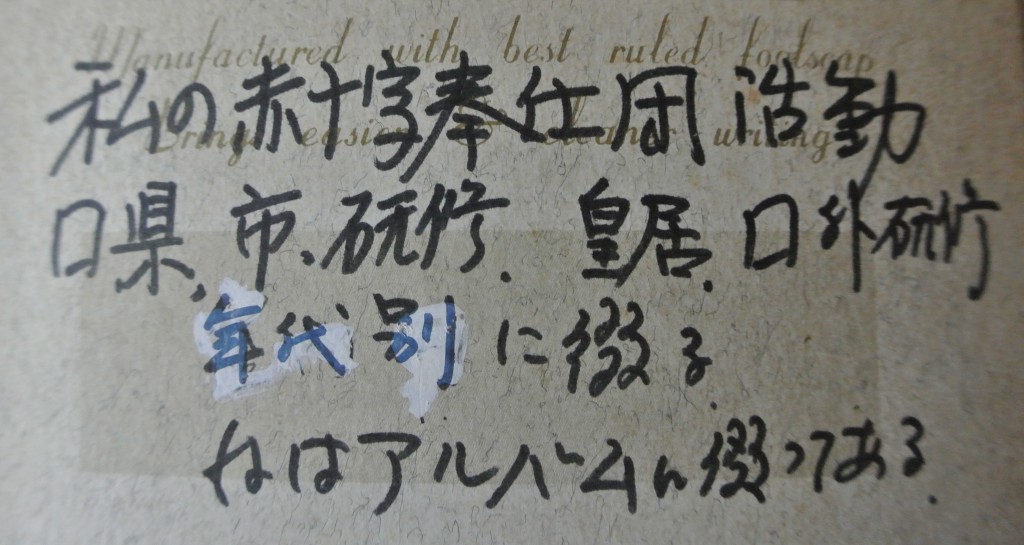 Manufactured with best ruled foolscap
Brings easier & cleaner writing
私の赤十字奉仕団活動
口県、市、研修、皇居、口外研修
年代別に綴る
はアルバムに綴ってある。